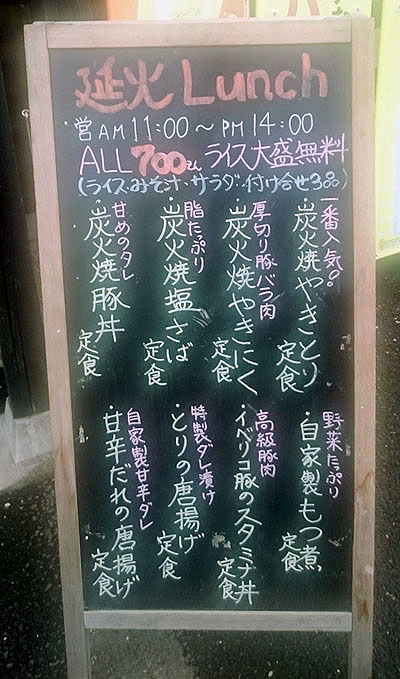 延火 Lunch
営 AM 11:00 ~ PM 14:00
ALL 700えん ライス大盛無料
(ライス、みそ汁、サラダ、付け合せ3品)
一番人気
・炭火焼やきとり定食
厚切り豚バラ肉
・炭火焼やきにく定食
脂たっぷり
・炭火焼塩さば定食
甘めのタレ
・炭火焼豚丼定食
野菜たっぷり
・自家製もつ煮定食
高級豚肉
・イベリコ豚のスタミナ丼定食
特製ダレ漬け
・とりの唐揚げ定食
自家製甘辛ダレ
・甘辛だれの唐揚げ定食